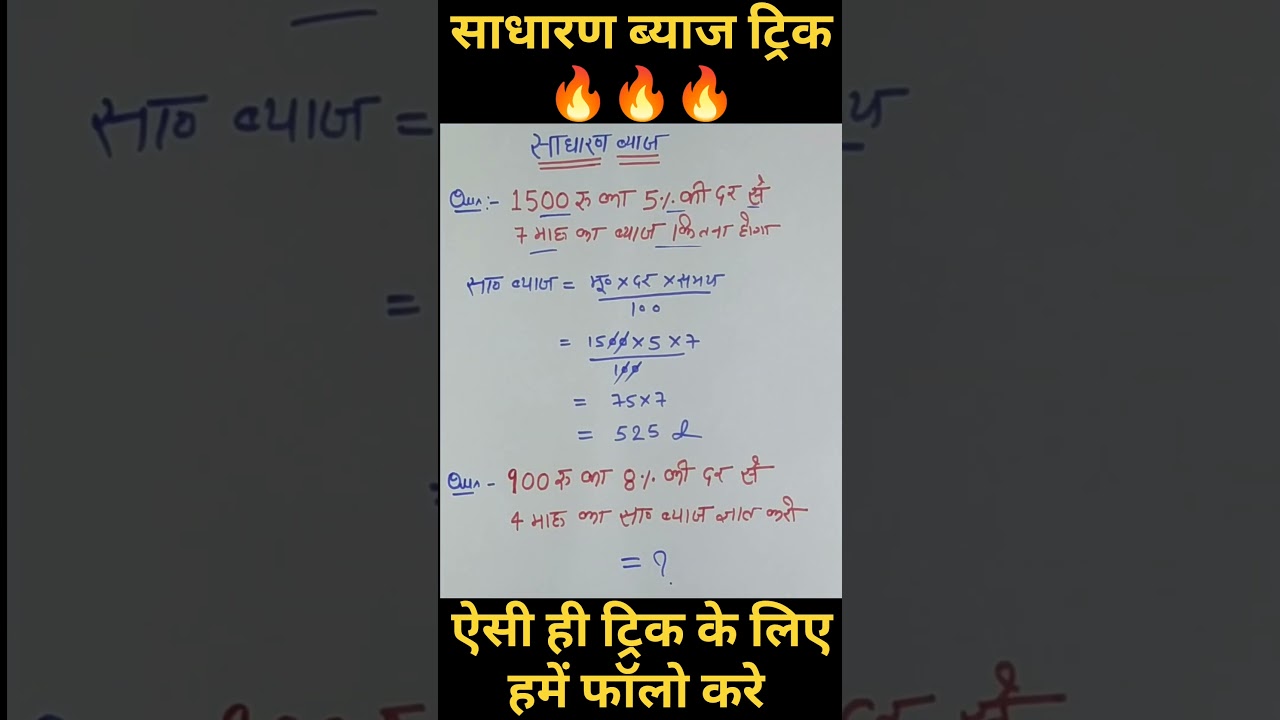 साधारण ब्याज ट्रिक
🔥🔥🔥
साधारण ब्याज
Qus:- 1500 रु का 5% की दर से
7 माह का ब्याज कितना होगा
सा० ब्याज = मू० × दर × समय
100
= 1500 × 5 × 7
100
= 75×7
= 525
Qus - 900 रु का 8% की दर से
4 माह का सा० ब्याज ज्ञात करो
= ?
ऐसी ही ट्रिक के लिए
हमें फॉलो करे